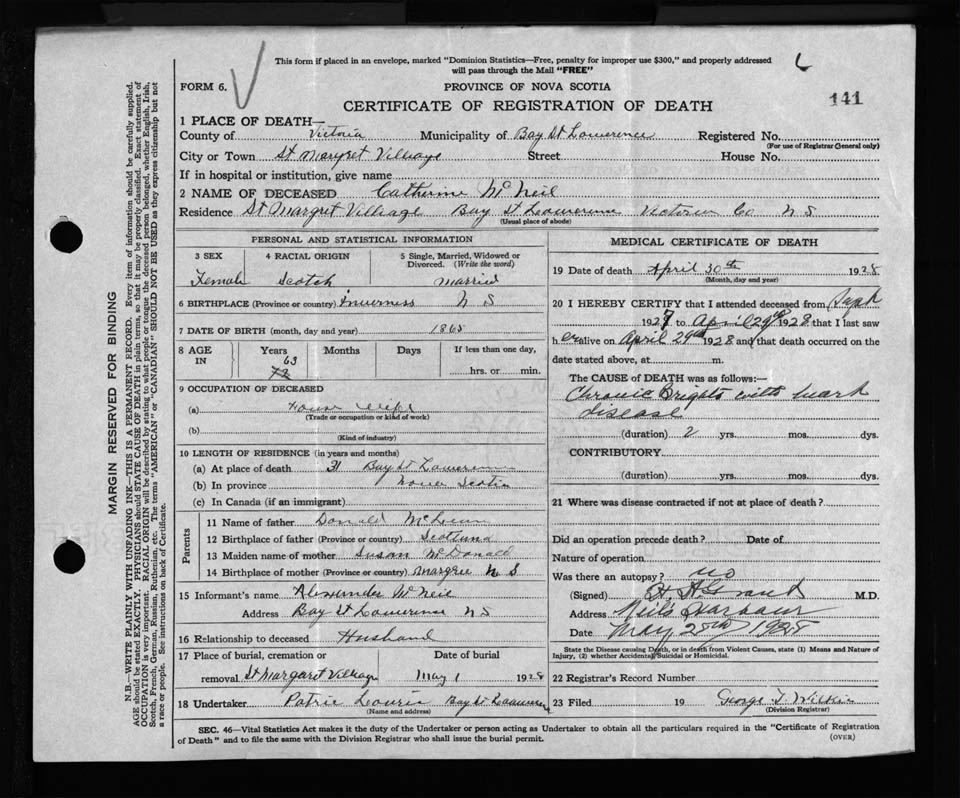 This form if placed in an envelope, marked "Dominion Statistics—Free, penalty for improper use $300," and properly addressed
will pass through the Mail "FREE"
FORM 6.
PROVINCE OF NOVA SCOTIA
CERTIFICATE OF REGISTRATION OF DEATH
141
1 PLACE OF DEATH—
County of Victoria Municipality of Bay St Lawerence Registered No.
(For use of Registrar General only)
City or Town St Margret Villiage Street House No.
If in hospital or institution, give name
2 NAME OF DECEASED Catherine McNeil
Residence St Margret Villiage Bay St Lawerence Victoria Co N S
(Usual place of abode)
PERSONAL AND STATISTICAL INFORMATION
3 SEX 4 RACIAL ORIGIN 5 Single, Married, Widowed or Divorced. (Write the word)
Female Scotch Married
6 BIRTHPLACE (Province or country) Inverness N S
7 DATE OF BIRTH (month, day and year) 1865
8 AGE IN Years Months Days If less than one day,
63
73
hrs. or min.
9 OCCUPATION OF DECEASED
(a) House Wife
(Trade or occupation or kind of work)
(b)
(Kind of industry)
10 LENGTH OF RESIDENCE (in years and months)
(a) At place of death 31 Bay St Lawerence
(b) In province Nova Scotia
(c) In Canada (if an immigrant)
Parents
11 Name of father Donald McLean
12 Birthplace of father (Province or country) Scotland
13 Maiden name of mother Susan McDonald
14 Birthplace of mother (Province or country) Margree N S
15 Informant's name Alexander McNeil
Address Bay St Lawerence N S
16 Relationship to deceased Husband
17 Place of burial, cremation or Date of burial
removal St Margaret Villiage May 1 1928
18 Undertaker Patric Bay St Lawerence
(Name and address)
MEDICAL CERTIFICATE OF DEATH
19 Date of death April 30th 1928
(Month, day and year)
20 I HEREBY CERTIFY that I attended deceased from Sept
1927 to April 29th 1928 that I last saw
h er alive on April 29th 1928 and that death occurred on the
date stated above, at m.
The CAUSE of DEATH was as follows:—
Chronic Brights with heart
disease
(duration) 2 yrs. mos. dys.
CONTRIBUTORY
(duration) yrs. mos. dys.
21 Where was disease contracted if not at place of death?
Did an operation precede death? Date of
Nature of operation
Was there an autopsy? no
(Signed) H. A. Grant M.D.
Address Neils Harbour
Date May 2nd 1928
State the Disease causing Death, or in death from Violent Causes, state (1) Means and Nature of
Injury, (2) whether Accidental, Suicidal or Homicidal.
22 Registrar's Record Number
23 Filed 19 George T. Wilkin
(Division Registrar)
SEC. 46—Vital Statistics Act makes it the duty of the Undertaker or person acting as Undertaker to obtain all the particulars required in the "Certificate of Registration
of Death" and to file the same with the Division Registrar who shall issue the burial permit.
(OVER)
MARGIN RESERVED FOR BINDING
N.B.—WRITE PLAINLY WITH UNFADING INK—THIS IS A PERMANENT RECORD. Every item of information should be carefully supplied.
AGE should be stated EXACTLY. PHYSICIANS should STATE CAUSE OF DEATH in plain terms, so that it may be properly classified. Exact statement of
OCCUPATION is very important. RACIAL ORIGIN will be described by stating to what people or tongue the deceased person belonged, whether English, Irish,
Scotch, French, German, Russian, Ruthenian, etc. The terms "AMERICAN" or "CANADIAN" SHOULD NOT BE USED as they express citizenship but not
a race or people. See instructions on back of Certificate.